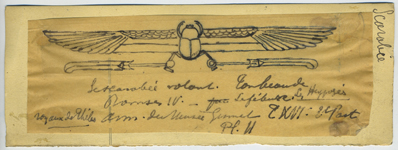 Scarabée
le scarabée volant. Tombeau de
Ramses IV. — par Lefébure Les Hypogées
royaux de Thèbes Ann. du Musée Guimet T. XVI. 2e Part
Pl. II